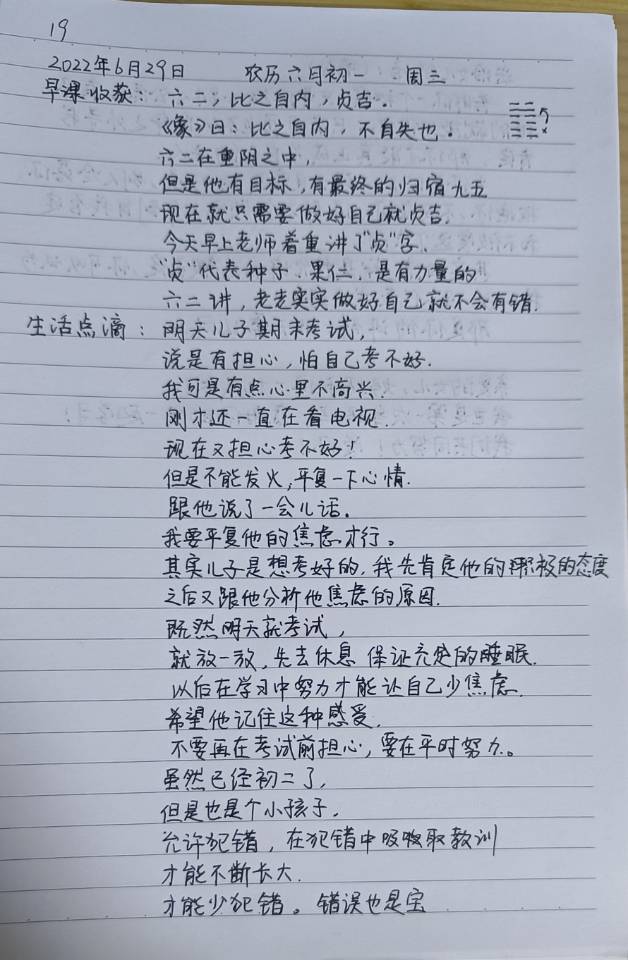 19
2022年6月29日 农历六月初一 周三
早课收获：六二，比之自内，贞吉．
《象》曰：比之自内，不自失也．
六二在重阴之中，
但是他有目标，有最终的归宿九五
现在就只需要做好自己就贞吉．
今天早上老师着重讲了"贞"字．
"贞"代表种子．果仁．是有力量的
六二讲，老老实实做好自己就不会有错．
生活点滴：明天儿子期末考试，
说是有担心，怕自己考不好．
我可是有点心里不高兴．
刚才还一直在看电视．
现在又担心考不好！
但是不能发火，平复一下心情．
跟他说了一会儿话．
我要平复他的焦虑才行。
其实儿子是想考好的，我先肯定他的积极的态度
之后又跟他分析他焦虑的原因．
既然明天就考试，
就放一放，先去休息 保证充足的睡眠．
以后在学习中努力才能让自己少焦虑．
希望他记住这种感受．
不要再在考试前担心，要在平时努力。
虽然已经初二了，
但是也是个小孩子．
允许犯错，在犯错中吸取教训
才能不断长大．
才能少犯错。错误也是宝